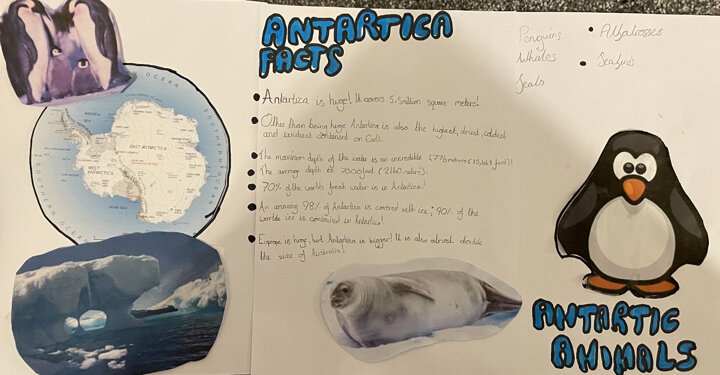 ANTARTICA
FACTS
Antartica is huge! It covers 5.5million square meters!
Other than being huge Antartica is also the highest, driest, coldest
and windiest continent on Earth.
The maximum depth of the water is an incredible 4,776 meters (15,669 feet)!
The average depth is 7000 foot (2160 meters).
70% of the worlds fresh water is in Antartica!
An amazing 98% of Antartica is covered with ice; 90% of the
worlds ice is contained in Antartica!
Europe is huge, but Antartica is bigger! It is also almost double
the size of Australia!
Penguins
Whales
Seals
Albatrosses
Seabirds
EAST ANTARCTICA
WEST ANTARCTICA
SOUTHERN OCEAN
ANTARTIC
ANIMALS